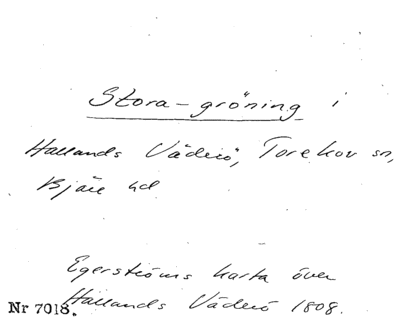 Stora-gröning i
Hallands Väderö, Torekov sn,
Bjäre hd
Egerströms karta över
Hallands Väderö 1808.
Nr 7018.